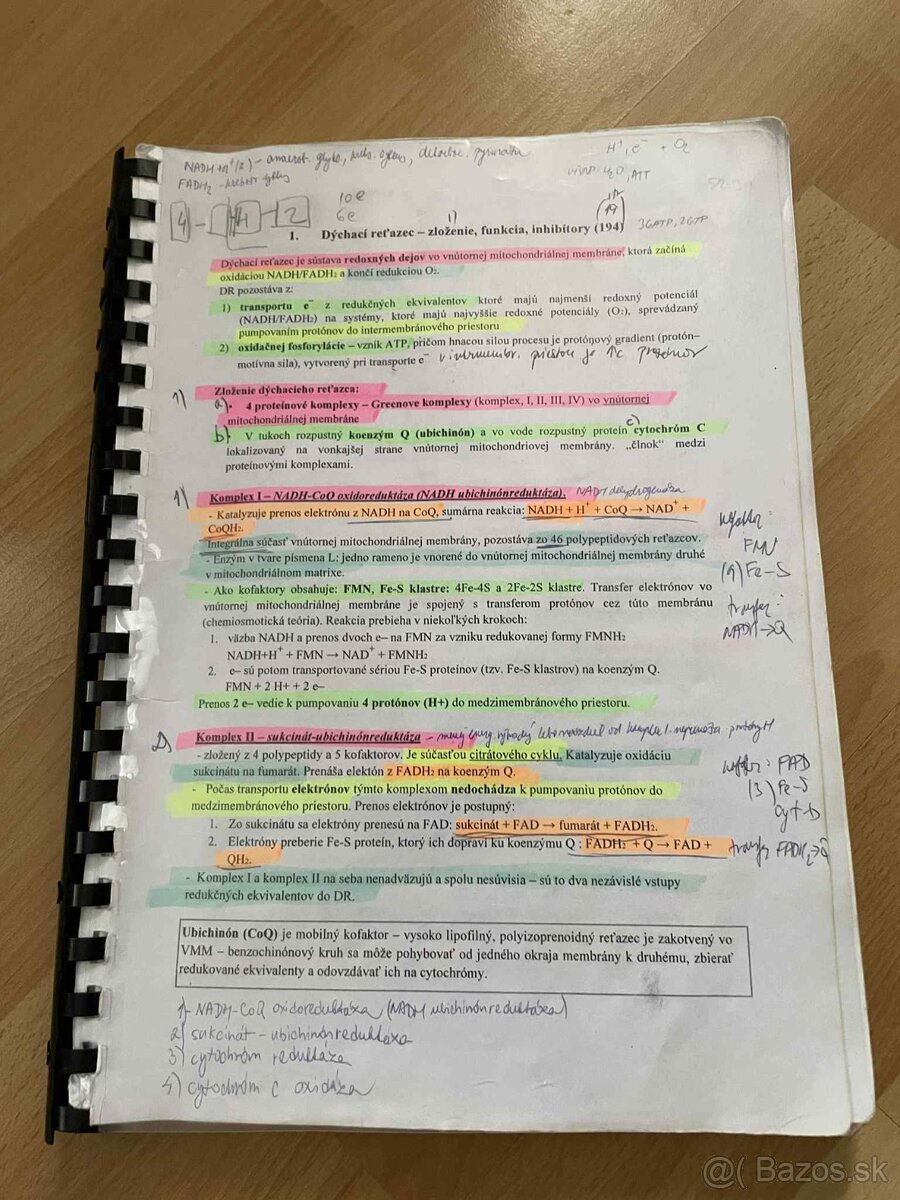 NADH+H⁺
FADH₂
H⁺, e⁻ + O₂
10e
6e
4 - 4 - 2
1)
19
1. Dýchací reťazec – zloženie, funkcia, inhibítory (194)
36ATP, 2GTP
Dýchací reťazec je sústava redoxných dejov vo vnútornej mitochondriálnej membráne, ktorá začína
oxidáciou NADH/FADH₂ a končí redukciou O₂.
DR pozostáva z:
1) transportu e⁻ z redukčných ekvivalentov ktoré majú najmenší redoxný potenciál
(NADH/FADH₂) na systémy, ktoré majú najvyššie redoxné potenciály (O₂), sprevádzaný
pumpovaním protónov do intermembránového priestoru
2) oxidačnej fosforylácie – vznik ATP, pričom hnacou silou procesu je protónový gradient (protón-
motívna sila), vytvorený pri transporte e⁻ v intermembr. priestore je
1) Zloženie dýchacieho reťazca:
a) • 4 proteínové komplexy – Greenove komplexy (komplex, I, II, III, IV) vo vnútornej
mitochondriálnej membráne
c)
b) V tukoch rozpustný koenzým Q (ubichinón) a vo vode rozpustný proteín cytochróm C
lokalizovaný na vonkajšej strane vnútornej mitochondriovej membrány. „člnok“ medzi
proteínovými komplexami.
1) Komplex I – NADH-CoQ oxidoreduktáza (NADH ubichinónreduktáza). NADH dehydrogenáza
- Katalyzuje prenos elektrónu z NADH na CoQ, sumárna reakcia: NADH + H⁺ + CoQ → NAD⁺ +
CoQH₂.
Integrálna súčasť vnútornej mitochondriálnej membrány, pozostáva zo 46 polypeptidových reťazcov.
- Enzým v tvare písmena L: jedno rameno je vnorené do vnútornej mitochondriálnej membrány druhé
v mitochondriálnom matrixe.
- Ako kofaktory obsahuje: FMN, Fe-S klastre: 4Fe-4S a 2Fe-2S klastre. Transfer elektrónov vo
vnútornej mitochondriálnej membráne je spojený s transferom protónov cez túto membránu
(chemiosmotická teória). Reakcia prebieha v niekoľkých krokoch:
1. väzba NADH a prenos dvoch e– na FMN za vzniku redukovanej formy FMNH₂
NADH+H⁺ + FMN → NAD⁺ + FMNH₂
2. e– sú potom transportované sériou Fe-S proteínov (tzv. Fe-S klastrov) na koenzým Q.
FMN + 2 H+ + 2 e–
Prenos 2 e– vedie k pumpovaniu 4 protónov (H+) do medzimembránového priestoru.
kofaktor:
FMN
(9) Fe-S
transfer:
NADH→Q
2) Komplex II – sukcinát-ubichinónreduktáza
- zložený z 4 polypeptidy a 5 kofaktorov. Je súčasťou citrátového cyklu. Katalyzuje oxidáciu
sukcinátu na fumarát. Prenáša elektón z FADH₂ na koenzým Q.
- Počas transportu elektrónov týmto komplexom nedochádza k pumpovaniu protónov do
medzimembránového priestoru. Prenos elektrónov je postupný:
1. Zo sukcinátu sa elektróny prenesú na FAD: sukcinát + FAD → fumarát + FADH₂.
2. Elektróny preberie Fe-S proteín, ktorý ich dopraví ku koenzýmu Q : FADH₂ + Q → FAD +
QH₂.
- Komplex I a komplex II na seba nenadväzujú a spolu nesúvisia – sú to dva nezávislé vstupy
redukčných ekvivalentov do DR.
kofaktor: FAD
(3) Fe-S
cyt-b
transfer FADH₂→Q
Ubichinón (CoQ) je mobilný kofaktor – vysoko lipofilný, polyizoprenoidný reťazec je zakotvený vo
VMM – benzochinónový kruh sa môže pohybovať od jedného okraja membrány k druhému, zbierať
redukované ekvivalenty a odovzdávať ich na cytochrómy.
1) NADH-CoQ oxidoreduktáza (NADH ubichinónreduktáza)
2) sukcinát - ubichinónreduktáza
3) cytochróm reduktáza
4) cytochróm c oxidáza
@( Bazos.sk